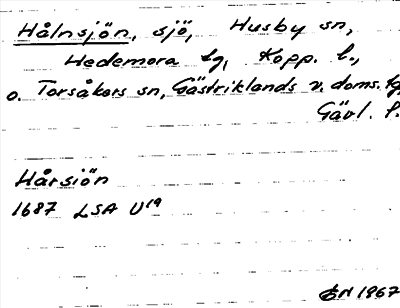 Hålnsjön, sjö, Husby sn,
Hedemora tg, Kopp. l.,
o. Torsåkers sn, Gästriklands v. doms. tg
Gävl. l.
Hårsiön
1687 LSA U19
1967